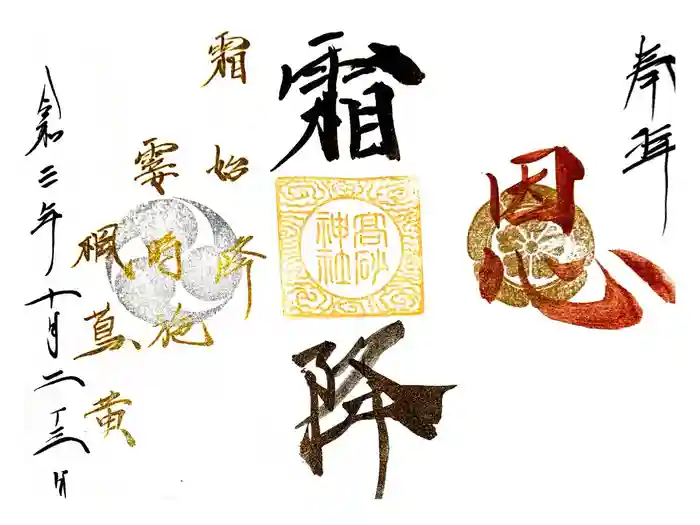 奉拝
恩
霜降
高砂神社
霜始降
霎時施
楓蔦黄
令和三年十月二十三日